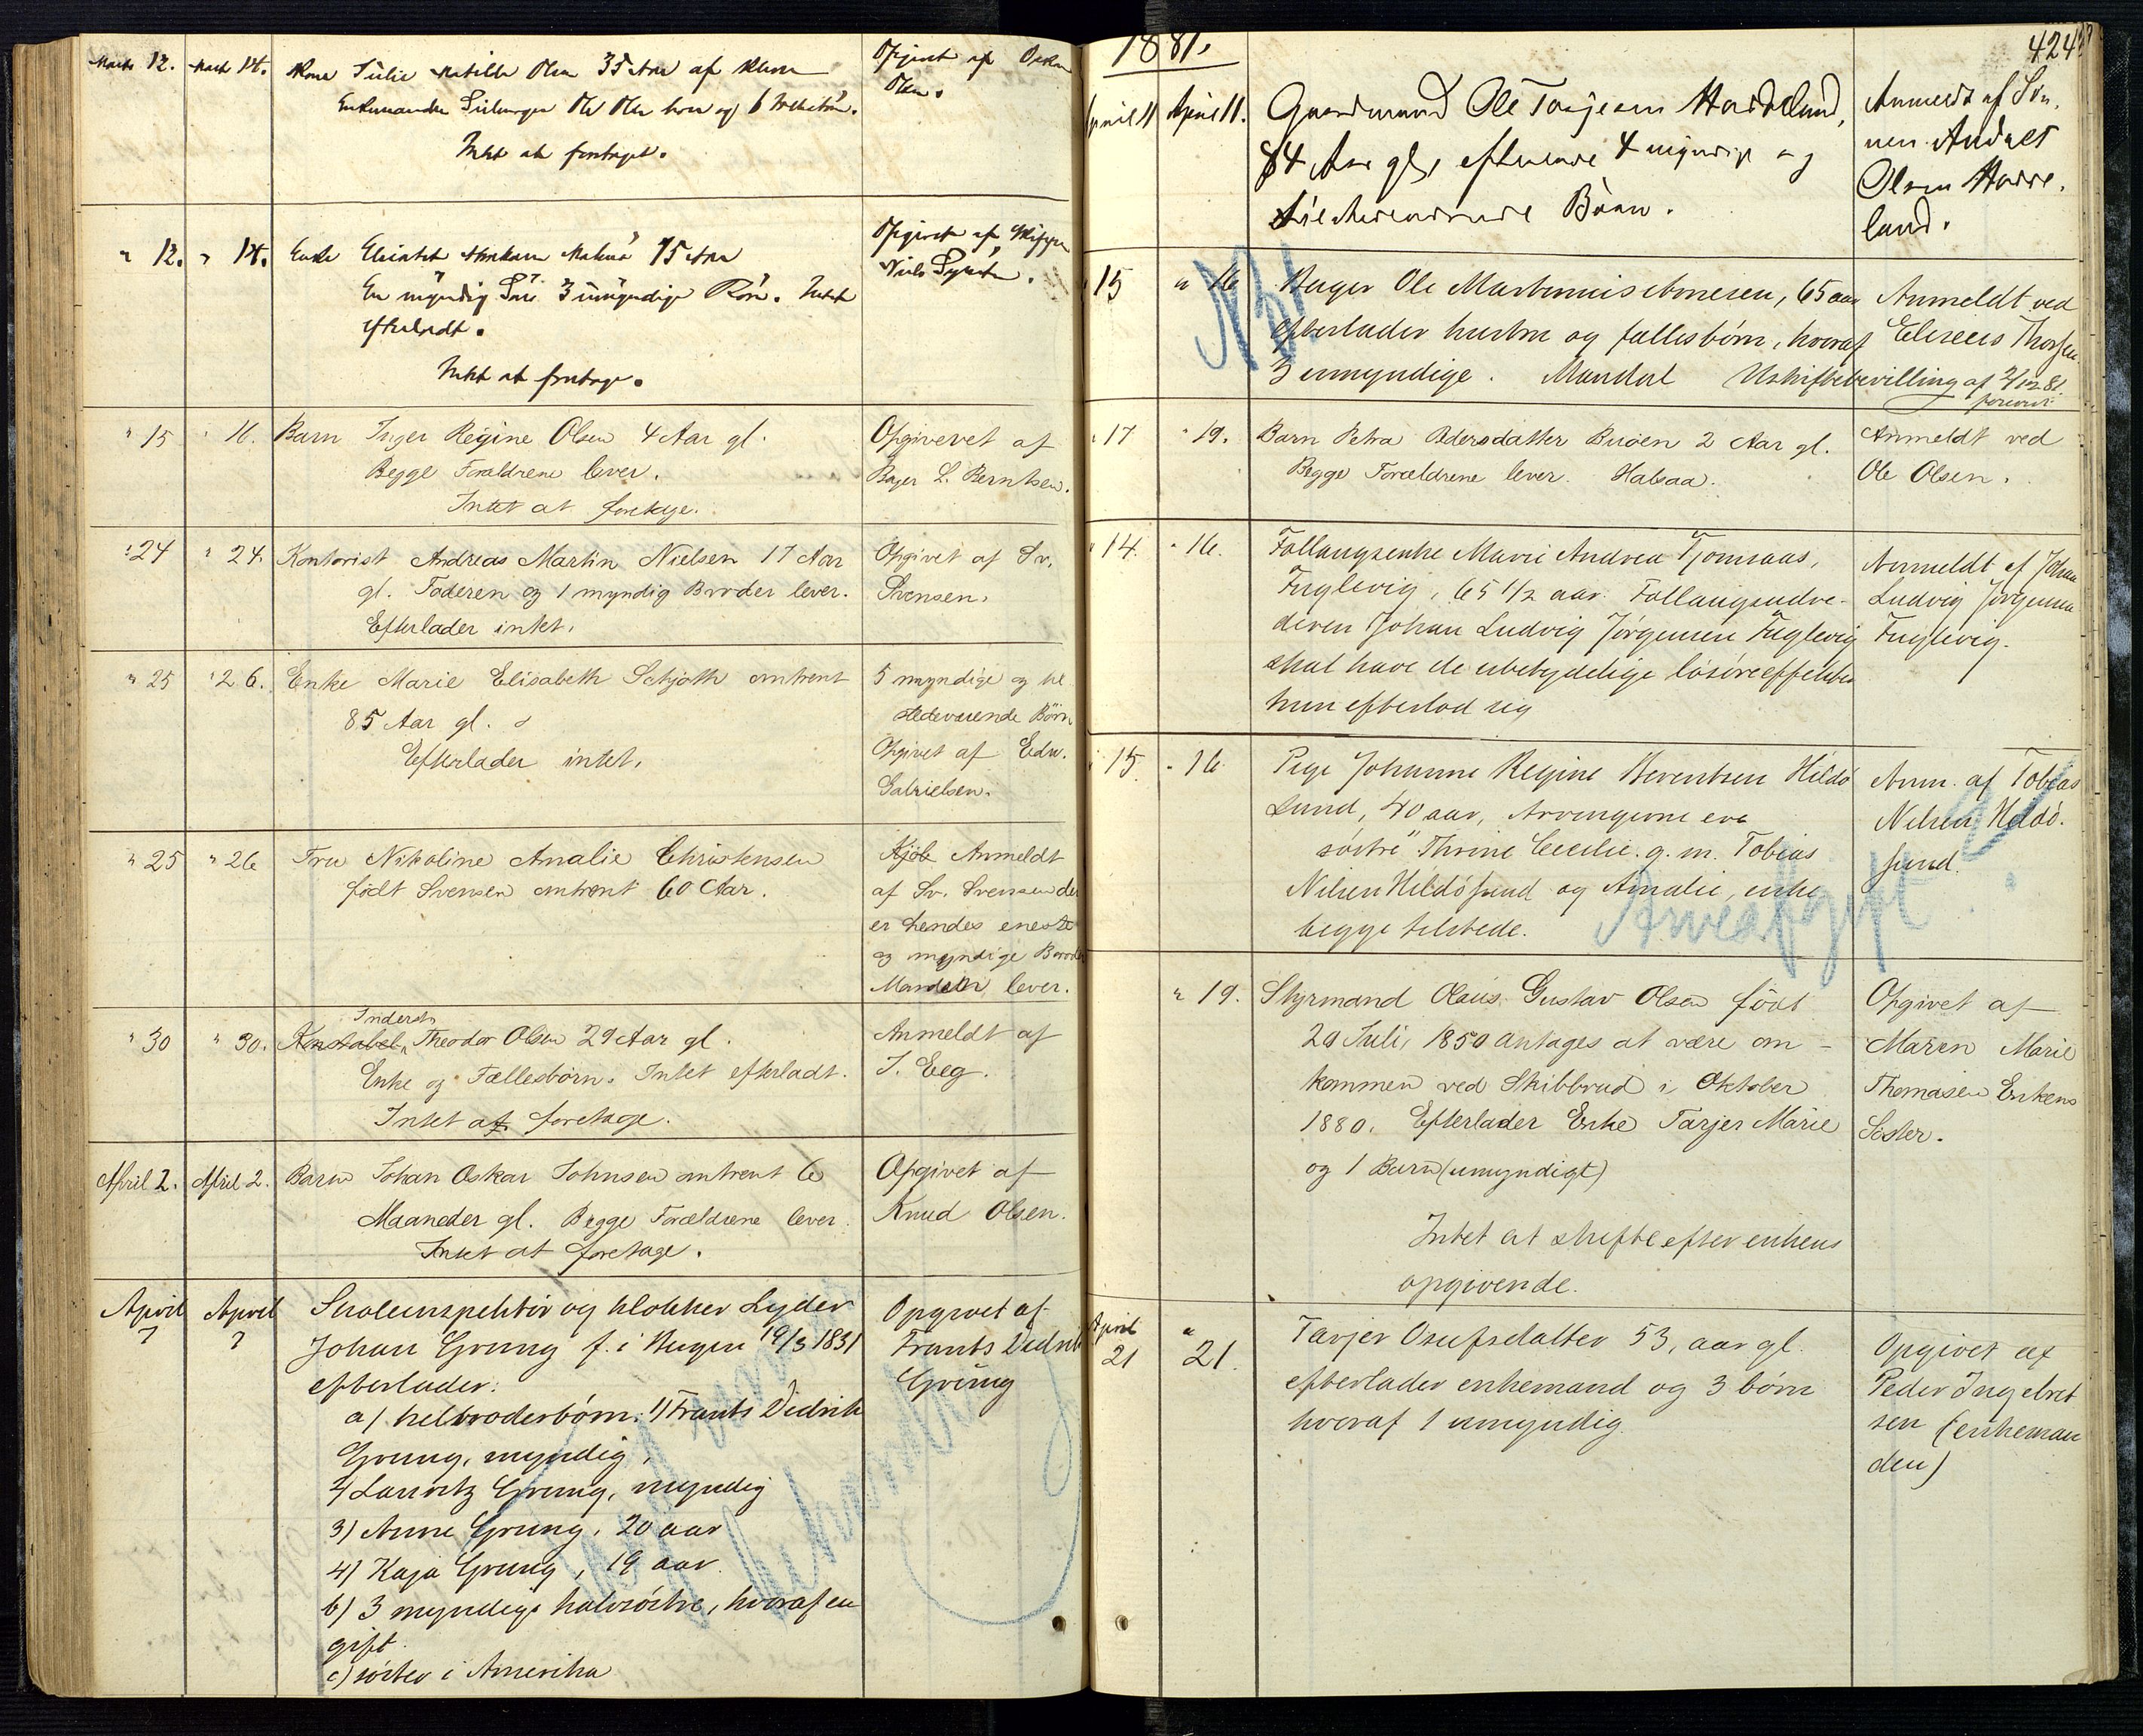 Marts 12. Marts 14. Kone Julie Matilde Olsen 35 Aar af
Enkemanden Ole Olsen har og 6
Intet at foretaget.
Opgivet af Oskar
Olsen.
" 12. " 14. Enke 75 Aar
En myndig Søn 3 umyndige Børn. Intet
efterladt.
Intet at foretage.
Opgivet af Skipper
Niels
" 15 " 16. Barn Inger Regine Olsen 4 Aar gl.
Begge Forældrene lever.
Intet at foretage.
Opgivevet af
Bager L. Berntsen.
" 24 " 24. Kontorist Andreas Martin Nielsen 17 Aar
gl. Faderen og 1 myndig Broder lever.
Efterlader intet.
Opgivet af Sv.
Svensen.
" 25 " 26. Enke Marie Elisabeth Schjøth omtrent
85 Aar gl.
Efterlader intet.
5 myndige og til
stedeværende Börn
Opgivet af Edv.
Gabrielsen.
" 25 " 26 Fru Nikoline Amalie Christensen
født Svensen omtrent 60 Aar.
Kjøb Anmeldt
af Sv. Svensen der
er hendes eneste
og myndige Broder
Manden lever.
Inderst
" 30 " 30. Konstabel Theodor Olsen 29 Aar gl.
Enke og Fællesbørn. Intet efterladt.
Intet at foretage.
Anmeldt af
J. Eeg.
April 2. April 2. Barn Johan Oskar Johnsen omtrent 6
Maaneder gl. Begge Forældrene lever.
Intet at foretage.
Opgivet af
Knud Olsen.
April April Skoleinspektör og klokker Lyder
7 7 Johan Grung f. i Bergen 19/3 1831
efterlader:
a) helbroderbörn: 1) Frants Didrik
Grung, myndig,
2) Lauritz Grung, myndig
3) Anne Grung, 20 aar
4) Kaja Grung, 19 aar.
b) 3 myndige halvsöstre, hvoraf en
gift.
c) söster i Amerika
Opgivet af
Frants Didrik
Grung
1881.
424
April 11 April 11. Gaardmand Ole Tarjesen Haddeland,
84 Aar gl, efterlevende 4 myndige og
tilstedeværende Børn.
Anmeldt af Søn.
nen Anders
Olsen Hadde.
land.
" 15 " 16 Bager Ole Martinius Arnesen, 65 aar
efterlader hustru og fællesbørn, hvoraf
3 umyndige. Mandal Uskiftebevilling af 2/12 81
Anmeldt ved
Eliseus Thorsen
" 17 " 19. Barn Petra Pedersdatter Buöen 2 Aar gl.
Begge Forældrene lever. Halsaa.
Anmeldt ved
Ole Olsen.
" 14. " 16. Follaugsenke Marie Andrea Tjomsaas,
Fuglevig, 65 1/2 aar. Follaugsudre-
deren Johan Ludvig Jörgensen Fuglevig
skal have de ubetydelige lösöreeffekter
hun efterlod sig
Anmeldt af Johan
Ludvig Jörgensen
Fuglevig.
" 15. " 16. Pige Johanne Regine Berentsen Hildö
sund, 40 aar, Arvingerne ere
söstre Thrine Cecilie g. m. Tobias
Nilsen Hildösund og Amalie, enke
begge tilstede.
Arveafgift
Anm. af Tobias
Nilsen Hildö.
sund.
" 19. Styrmand Olaus Gustav Olsen født
20 Juli 1850 antages at være om-
kommen ved Skibbrud i Oktober
1880. Efterlader Enke Tarjer Marie
og 1 Barn (umyndigt)
Intet at skifte efter enkens
opgivende.
Opgivet af
Maren Marie
Thomasen Enkens
Søster.
April " Tarjer Osufsdatter 53, aar gl.
21 21. efterlader enkemand og 3 börn
hvoraf 1 umyndig.
Opgivet af
Peder Ingebret
sen (enkeman
den)